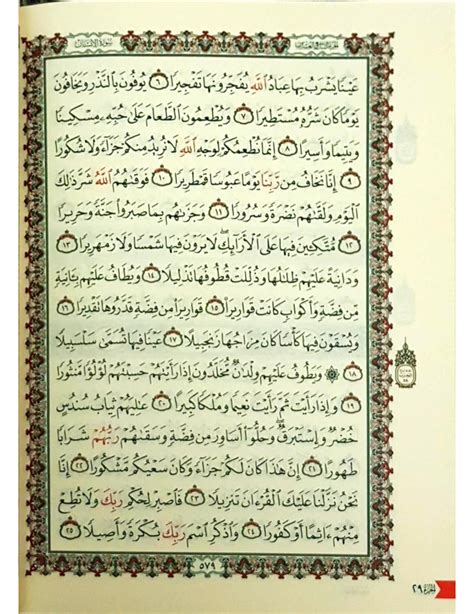 سُورَةُ الإِنسَانِ
عَيْنًا يَشْرَبُ بِهَا عِبَادُ ٱللَّهِ يُفَجِّرُونَهَا تَفْجِيرًا ٦ يُوفُونَ بِٱلنَّذْرِ وَيَخَافُونَ
يَوْمًا كَانَ شَرُّهُۥ مُسْتَطِيرًا ٧ وَيُطْعِمُونَ ٱلطَّعَامَ عَلَىٰ حُبِّهِۦ مِسْكِينًا
وَيَتِيمًا وَأَسِيرًا ٨ إِنَّمَا نُطْعِمُكُمْ لِوَجْهِ ٱللَّهِ لَا نُرِيدُ مِنكُمْ جَزَآءً وَلَا شُكُورًا
٩ إِنَّا نَخَافُ مِن رَّبِّنَا يَوْمًا عَبُوسًا قَمْطَرِيرًا ١٠ فَوَقَىٰهُمُ ٱللَّهُ شَرَّ ذَٰلِكَ
ٱلْيَوْمِ وَلَقَّىٰهُمْ نَضْرَةً وَسُرُورًا ١١ وَجَزَىٰهُم بِمَا صَبَرُوا۟ جَنَّةً وَحَرِيرًا
١٢ مُّتَّكِـِٔينَ فِيهَا عَلَى ٱلْأَرَآئِكِ ۖ لَا يَرَوْنَ فِيهَا شَمْسًا وَلَا زَمْهَرِيرًا ١٣
وَدَانِيَةً عَلَيْهِمْ ظِلَٰلُهَا وَذُلِّلَتْ قُطُوفُهَا تَذْلِيلًا ١٤ وَيُطَافُ عَلَيْهِم بِـَٔانِيَةٍ
مِّن فِضَّةٍ وَأَكْوَابٍ كَانَتْ قَوَارِيرَا۠ ١٥ قَوَارِيرَا۟ مِن فِضَّةٍ قَدَّرُوهَا تَقْدِيرًا ١٦
وَيُسْقَوْنَ فِيهَا كَأْسًا كَانَ مِزَاجُهَا زَنجَبِيلًا ١٧ عَيْنًا فِيهَا تُسَمَّىٰ سَلْسَبِيلًا
١٨ ۞ وَيَطُوفُ عَلَيْهِمْ وِلْدَٰنٌ مُّخَلَّدُونَ إِذَا رَأَيْتَهُمْ حَسِبْتَهُمْ لُؤْلُؤًا مَّنثُورًا
١٩ وَإِذَا رَأَيْتَ ثَمَّ رَأَيْتَ نَعِيمًا وَمُلْكًا كَبِيرًا ٢٠ عَٰلِيَهُمْ ثِيَابُ سُندُسٍ
خُضْرٌ وَإِسْتَبْرَقٌ ۖ وَحُلُّوٓا۟ أَسَاوِرَ مِن فِضَّةٍ وَسَقَىٰهُمْ رَبُّهُمْ شَرَابًا
طَهُورًا ٢١ إِنَّ هَٰذَا كَانَ لَكُمْ جَزَآءً وَكَانَ سَعْيُكُم مَّشْكُورًا ٢٢ إِنَّا
نَحْنُ نَزَّلْنَا عَلَيْكَ ٱلْقُرْءَانَ تَنزِيلًا ٢٣ فَٱصْبِرْ لِحُكْمِ رَبِّكَ وَلَا تُطِعْ
مِنْهُمْ ءَاثِمًا أَوْ كَفُورًا ٢٤ وَٱذْكُرِ ٱسْمَ رَبِّكَ بُكْرَةً وَأَصِيلًا ٢٥
٥٧٩
الجزء ٢٩